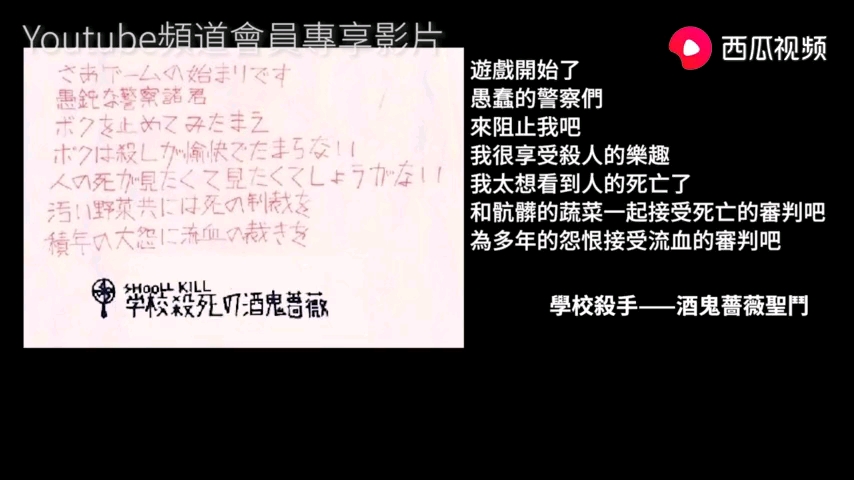 Youtube頻道會員專享影片
西瓜视频
さあゲームの始まりです
愚鈍な警察諸君
ボクを止めてみたまえ
ボクは殺しが愉快でたまらない
人の死が見たくて見たくてしょうがない
汚い野菜共には死の制裁を
積年の大怨に流血の裁きを
SHOOLL KILL
学校殺死の酒鬼薔薇
遊戲開始了
愚蠢的警察們
來阻止我吧
我很享受殺人的樂趣
我太想看到人的死亡了
和骯髒的蔬菜一起接受死亡的審判吧
為多年的怨恨接受流血的審判吧
學校殺手——酒鬼薔薇聖鬥